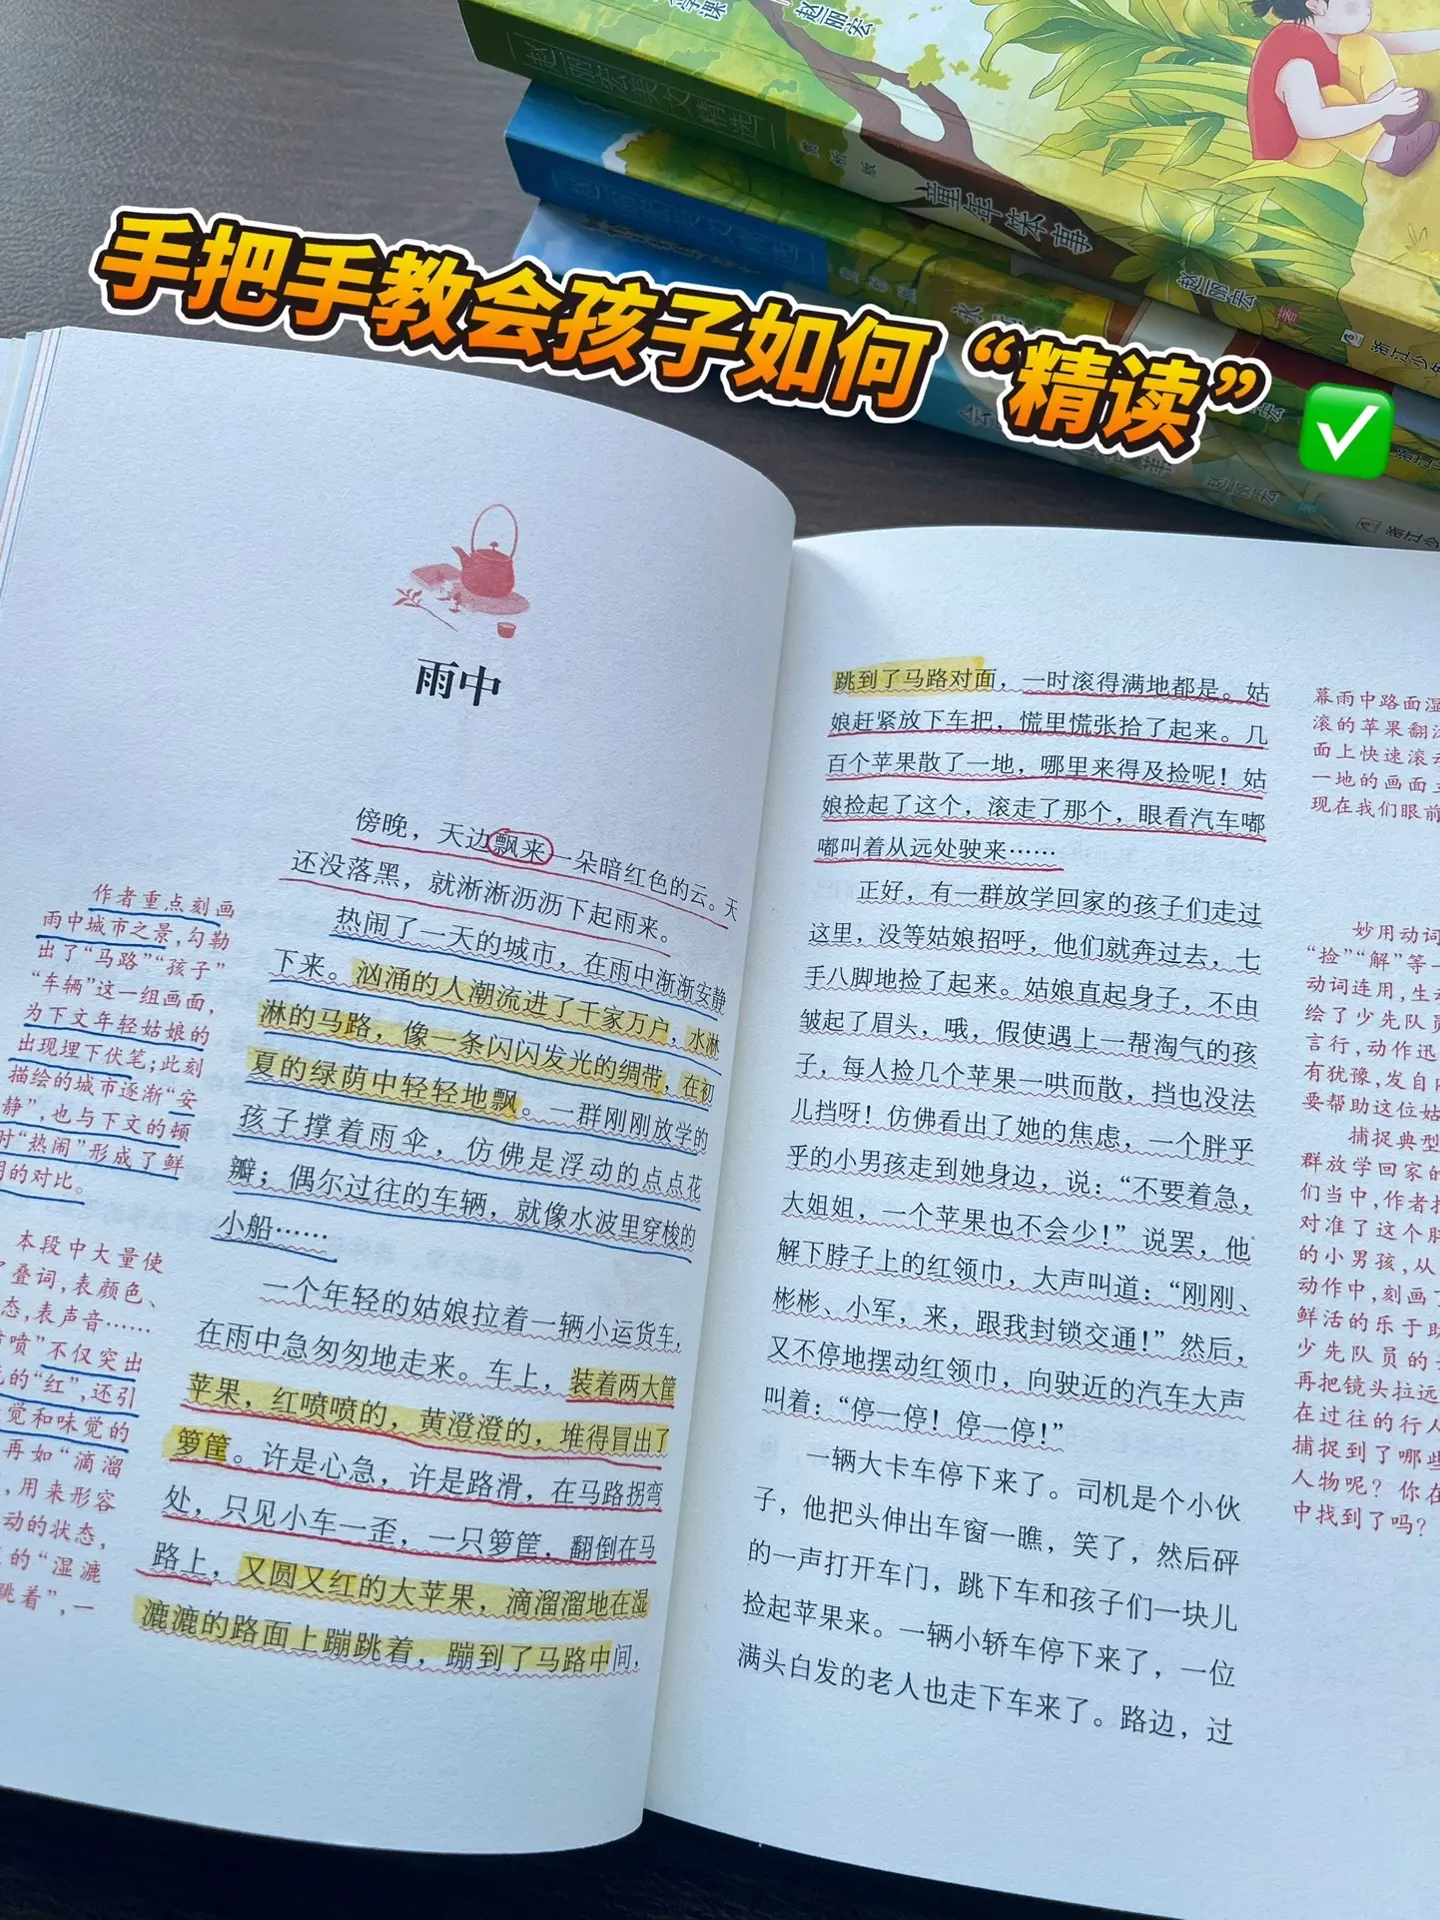 学课
赵丽宏
赵丽宏美文精选
赏析版
童年笨事
赵丽宏 著
浙江少年
赵丽宏
手把手教会孩子如何“精读”
雨中
傍晚，天边飘来一朵暗红色的云。天
还没落黑，就淅淅沥沥下起雨来。
热闹了一天的城市，在雨中渐渐安静
下来。汹涌的人潮流进了千家万户，水淋
淋的马路，像一条闪闪发光的绸带，在初
夏的绿荫中轻轻地飘。一群刚刚放学的
孩子撑着雨伞，仿佛是浮动的点点花
瓣；偶尔过往的车辆，就像水波里穿梭的
小船……
一个年轻的姑娘拉着一辆小运货车，
在雨中急匆匆地走来。车上，装着两大筐
苹果，红喷喷的，黄澄澄的，堆得冒出了
箩筐。许是心急，许是路滑，在马路拐弯
处，只见小车一歪，一只箩筐，翻倒在马
路上，又圆又红的大苹果，滴溜溜地在湿
漉漉的路面上蹦跳着，蹦到了马路中间，
作者重点刻画
雨中城市之景，勾勒
出了“马路”“孩子”
“车辆”这一组画面，
为下文年轻姑娘的
出现埋下伏笔；此刻
描绘的城市逐渐“安
静”，也与下文的顿
时“热闹”形成了鲜
明的对比。
本段中大量使
了叠词，表颜色、
态，表声音……
喷”不仅突出
的“红”，还引
觉和味觉的
再如“滴溜
，用来形容
动的状态，
的“湿漉
跳着”，一
跳到了马路对面，一时滚得满地都是。姑
娘赶紧放下车把，慌里慌张拾了起来。几
百个苹果散了一地，哪里来得及捡呢！姑
娘捡起了这个，滚走了那个，眼看汽车嘟
嘟叫着从远处驶来……
正好，有一群放学回家的孩子们走过
这里，没等姑娘招呼，他们就奔过去，七
手八脚地捡了起来。姑娘直起身子，不由
皱起了眉头，哦，假使遇上一帮淘气的孩
子，每人捡几个苹果一哄而散，挡也没法
儿挡呀！仿佛看出了她的焦虑，一个胖乎
乎的小男孩走到她身边，说：“不要着急，
大姐姐，一个苹果也不会少！”说罢，他
解下脖子上的红领巾，大声叫道：“刚刚、
彬彬、小军，来，跟我封锁交通！”然后，
又不停地摆动红领巾，向驶近的汽车大声
叫着：“停一停！停一停！”
一辆大卡车停下来了。司机是个小伙
子，他把头伸出车窗一瞧，笑了，然后砰
的一声打开车门，跳下车和孩子们一块儿
捡起苹果来。一辆小轿车停下来了，一位
满头白发的老人也走下车来了。路边，过
幕雨中路面湿
滚的苹果翻滚
面上快速滚动
一地的画面立
现在我们眼前
妙用动词
“捡”“解”等一
动词连用，生动
绘了少先队员
言行，动作迅
有犹豫，发自内
要帮助这位姑
捕捉典型
群放学回家的
们当中，作者把
对准了这个胖
的小男孩，从
动作中，刻画了
鲜活的乐于助
少先队员的
再把镜头拉远
在过往的行人
捕捉到了哪些
人物呢？你在
中找到了吗？